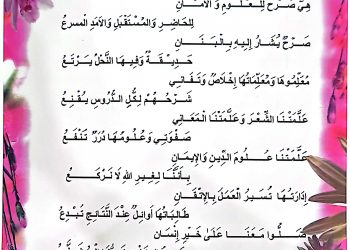 هِيَ صَرْحٌ لِلْعُلُومِ وَ الأَمَانِ
لِلحَاضِرِ وَالمُسْتَقْبَلِ وَالأَمَدِ المسرع
صَرْحٌ يُشَارُ إِلَيهِ بِالْبَنَانِ
حَدِيقَةٌ وَفِيهَا النَّحْلُ يَرْتَعُ
مُعَلِّمُوهَا وَمُعَلِّمَاتُهَا إِخْلَاصٌ وَتَفَانِي
شَرْحُهُمْ لِكُلِّ الدُّرُوسِ يُقْنِعُ
عَلَّمَتْنَا الشِّعْرَ وَعَلَّمَتْنَا المَعَانِي
صَفْوَتِي وَعُلُومُهَا دُرَرٌ تَنْفَعُ
عَلَّمَتْنَا عُلُومَ الدِّينِ وَالإِيمَانِ
بِأَنَّنَا لِغَيرِ اللهِ لَا نَرْكَعُ
إِدَارَتُهَا تُسَيرُ العَمَلَ بِالإِتْقَانِ
طَالِبَاتُهَا أَوَائِلٌ عِنْدَ النَّتَائِجِ تُبْدِعُ
صَلُّوا مَعَنَا عَلَىٰ خَيْرِ إِنْسَانِ